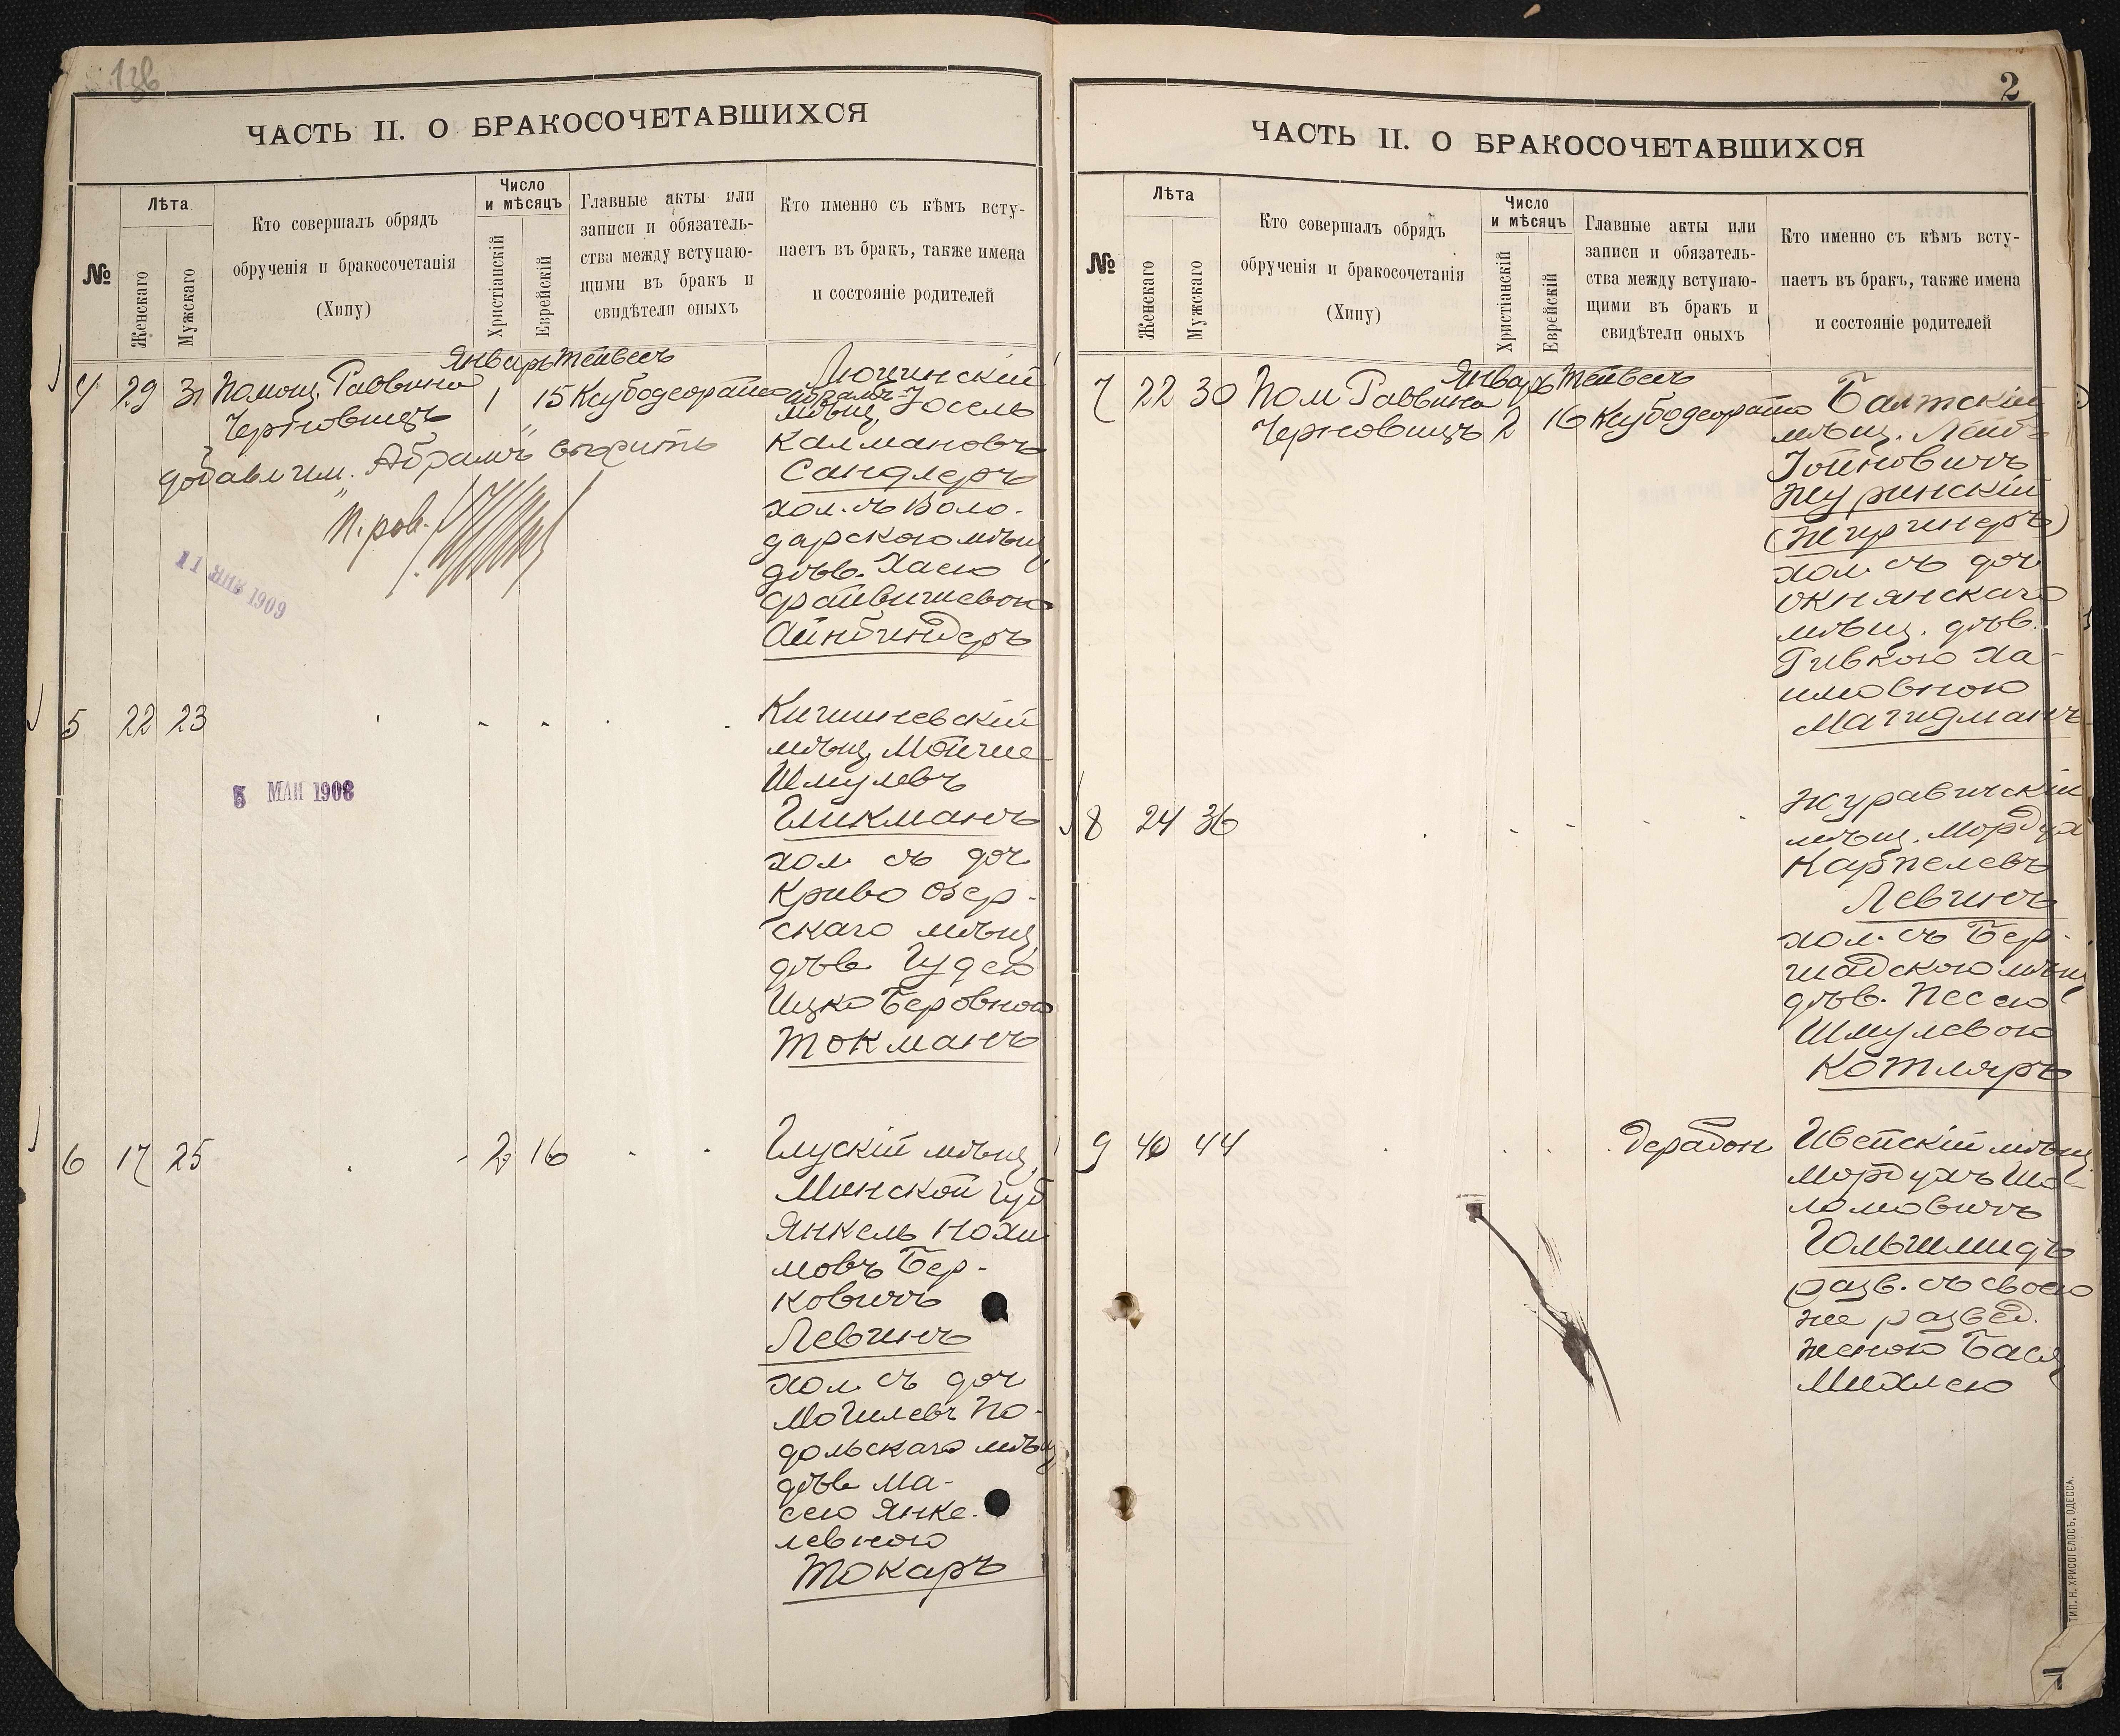 ЧАСТЬ II. О БРАКОСОЧЕТАВШИХСЯ
№
Лѣта
Женскаго
Мужскаго
Кто совершалъ обрядъ
обрученія и бракосочетанія
(Хипу)
Число
и мѣсяцъ
Христіанскій
Еврейскій
Главные акты или
записи и обязатель-
ства между вступаю-
щими въ бракъ и
свидѣтели оныхъ
Кто именно съ кѣмъ всту-
паетъ въ бракъ, также имена
и состояніе родителей
Январь Тейвесъ
4 29 31 Помощ. Раввина 1 15
Черновицъ
добавл им. Абрамъ
11 ЯНВ 1909
Люцинскій
Абрамъ-
мѣщ. Іосель
Калмановъ
Сандлеръ
хол. съ Воло-
дарскою мѣщ.
дѣв. Хаею
Файвишевою
Айнбиндеръ
5 22 23
5 МАЙ 1908
Кишиневскій
мѣщ. Мойше
Шмулевъ
Гликманъ
хол. съ доч.
Криво Озер-
скаго мѣщ.
дѣв. Гудею
Ицко Беровною
Токманъ
6 17 25 2 16
Глускій мѣщ.
Минской губ
Янкель Нохи
мовъ Бер-
ковичъ
Левинъ
хол. съ доч
Могилевъ По-
дольскаго мѣщ
дѣв. Ма-
сею Янке-
левною
Токаръ
2
ЧАСТЬ II. О БРАКОСОЧЕТАВШИХСЯ
№
Лѣта
Женскаго
Мужскаго
Кто совершалъ обрядъ
обрученія и бракосочетанія
(Хипу)
Число
и мѣсяцъ
Христіанскій
Еврейскій
Главные акты или
записи и обязатель-
ства между вступаю-
щими въ бракъ и
свидѣтели оныхъ
Кто именно съ кѣмъ всту-
паетъ въ бракъ, также имена
и состояніе родителей
Январь Тейвесъ
7 22 30 Пом Раввина
Черновицъ 2 16
Балтскій
мѣщ. Лейб
Іойновичъ
Журинскій
(Жиринеръ)
хол. съ доч
Окнянскаго
мѣщ. дѣв.
Ривкою Ха-
имовною
Магидманъ
8 24 36
Журавичскій
мѣщ. Мордух
Карпелевъ
Левинъ
хол. съ Бер-
шадскою мѣщ
дѣв. Песею
Шмулевою
Котляръ
9 40 44
Ивейскій мѣщ.
Мордухъ Шо-
ломовичъ
Гольшмидъ
разв. съ своею
же развед.
женою Бася
Михлею
ТИП. Н. ХРИСОГЕЛОСЪ, ОДЕССА.